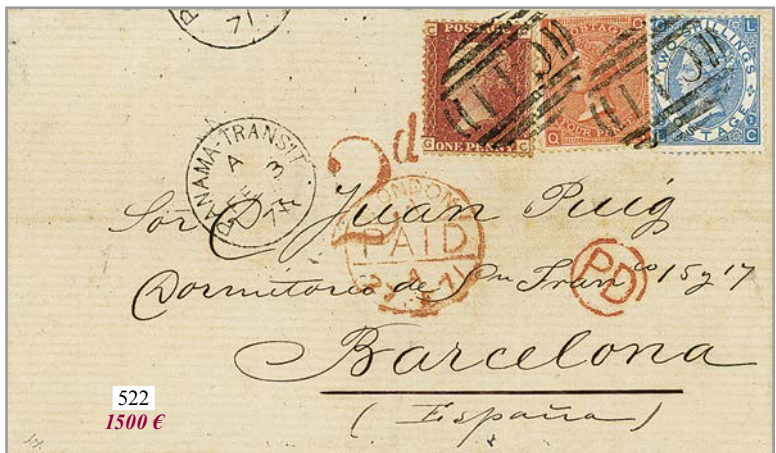 71
POSTAGE
ONE PENNY
G C
POSTAGE
FOUR PENCE
Q
TWO SHILLINGS
POSTAGE
L C
PANAMA-TRANSIT
A
3
71
2d
LONDON
PAID
71
PD
Sor D. Juan Puig
Dormitorio de Sn Franco 15 y 17
Barcelona
(España)
522
1500 €